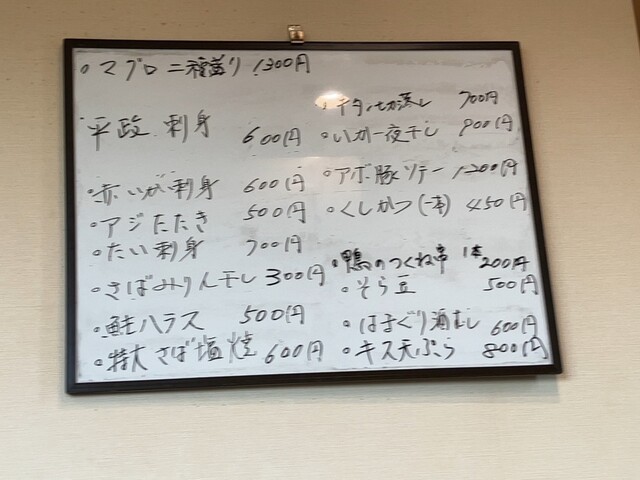 ・マグロ二種盛り 1300円
平政 刺身 600円
・赤いか刺身 600円
・アジたたき 500円
・たい刺身 700円
・さばみりん干し 300円
・鮭ハラス 500円
・特大さば塩焼 600円
切落し 700円
・いか一夜干し 900円
・アボ豚ソテー 1200円
・くしかつ(一本) 450円
・鴨のつくね串 1本 200円
・そら豆 500円
・はまぐり酒むし 600円
・キス天ぷら 800円